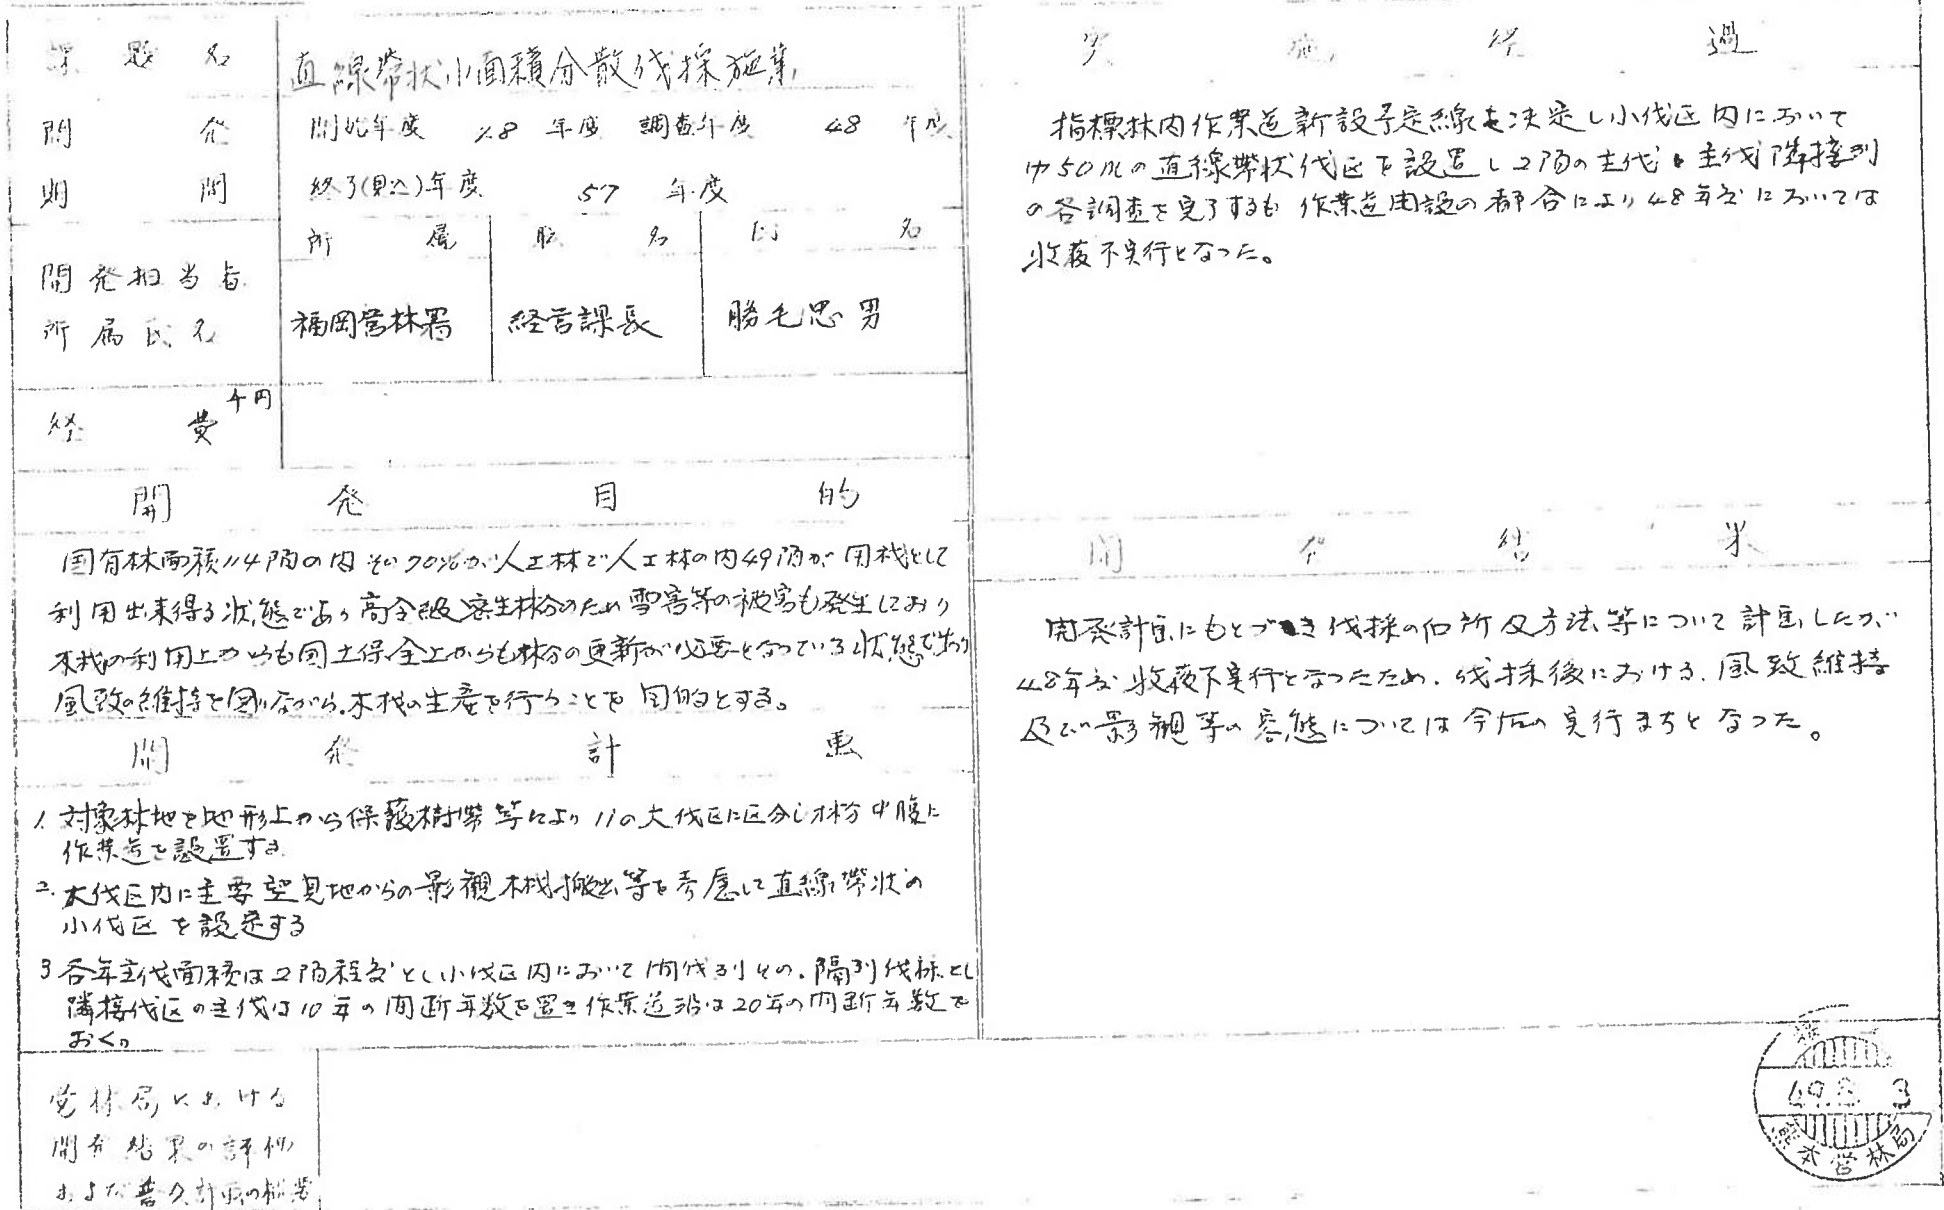 課題名
直線帯状小面積分散伐採施業
開発
期間
開始年度 48 年度 調査年度 48 年度
終了(見込)年度 57 年度
開発担当者
所属氏名
所属 職名 氏名
福岡営林署 経営課長 勝毛思男
経費 千円
開発目的
国有林面積114陌の内その70%が人工林で人工林の内49陌が用材として
利用出来得る状態であり高令級密生林分のため雪害等の被害も発生しており
木材の利用上からも国土保全上からも林分の更新が必要となっている状態であり
風致の維持を図りながら、木材の生産を行うことを目的とする。
開発計画
1. 対象林地を地形上から保護樹帯等により11の大伐区に区分し林分中腹に
作業道を設置する
2. 大伐区内に主要望見地からの景観木材搬出等を考慮して直線帯状の
小伐区を設定する
3 各年主伐面積は2陌程度とし小伐区内において間伐列その、隔列伐採とし
隣接伐区の主伐は10年の間断年数を置き作業道沿は20年の間断年数を
おく。
営林局における
開発結果の評価
および普及計画の概要
実施経過
指標林内作業道新設予定線を決定し小伐区内において
巾50mの直線帯状伐区を設置し2陌の主伐、主伐隣接列
の各調査を完了するも作業道開設の都合により48年度においては
収穫不実行となった。
開発結果
開発計画にもとづき伐採の個所及方法等について計画したが
48年度収穫不実行となったため、伐採後における、風致維持
及び景観等の容態については今后の実行まちとなった。
49.3
熊本営林局